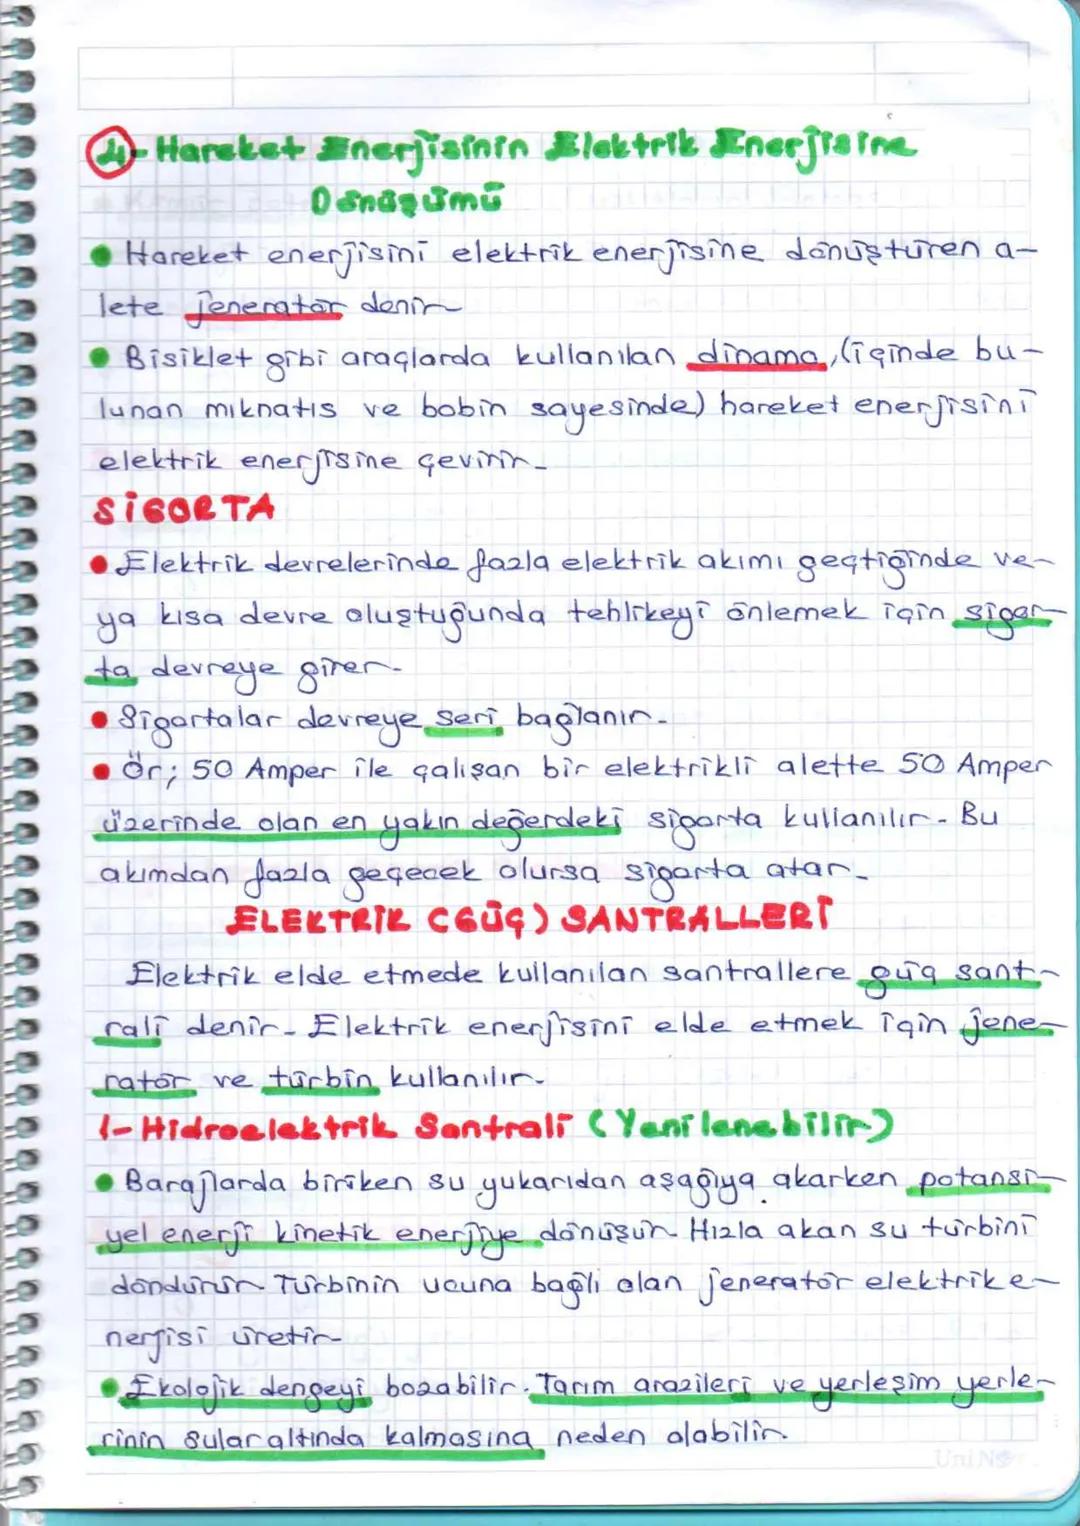 4- Hareket Enerjisinin Elektrik Enerjisine
Dönüşümü
● Hareket enerjisini elektrik enerjisine dönüştüren a-
lete jeneratör denir.
● Bisiklet gibi araçlarda kullanılan dinamo, (içinde bu-
lunan mıknatıs ve bobin sayesinde) hareket enerjisini
elektrik enerjisine çevirir.
SİGORTA
● Elektrik devrelerinde fazla elektrik akımı geçtiğinde ve-
ya kısa devre oluştuğunda tehlikeyi önlemek için sigor-
ta devreye girer.
● Sigortalar devreye seri bağlanır.
● Ör; 50 Amper ile çalışan bir elektrikli alette 50 Amper
üzerinde olan en yakın değerdeki sigorta kullanılır. Bu
akımdan fazla geçecek olursa sigorta atar.
ELEKTRİK (GÜÇ) SANTRALLERİ
Elektrik elde etmede kullanılan santrallere güç sant-
rali denir. Elektrik enerjisini elde etmek için jene-
ratör ve türbin kullanılır.
1- Hidroelektrik Santrali (Yenilenebilir)
● Barajlarda biriken su yukarıdan aşağıya akarken potansi-
yel enerji kinetik enerjiye dönüşür. Hızla akan su türbini
döndürür. Türbinin ucuna bağlı olan jeneratör elektrik e-
nerjisi üretir.
● Ekolojik dengeyi bozabilir. Tarım arazileri ve yerleşim yerle-
rinin sular altında kalmasına neden olabilir.